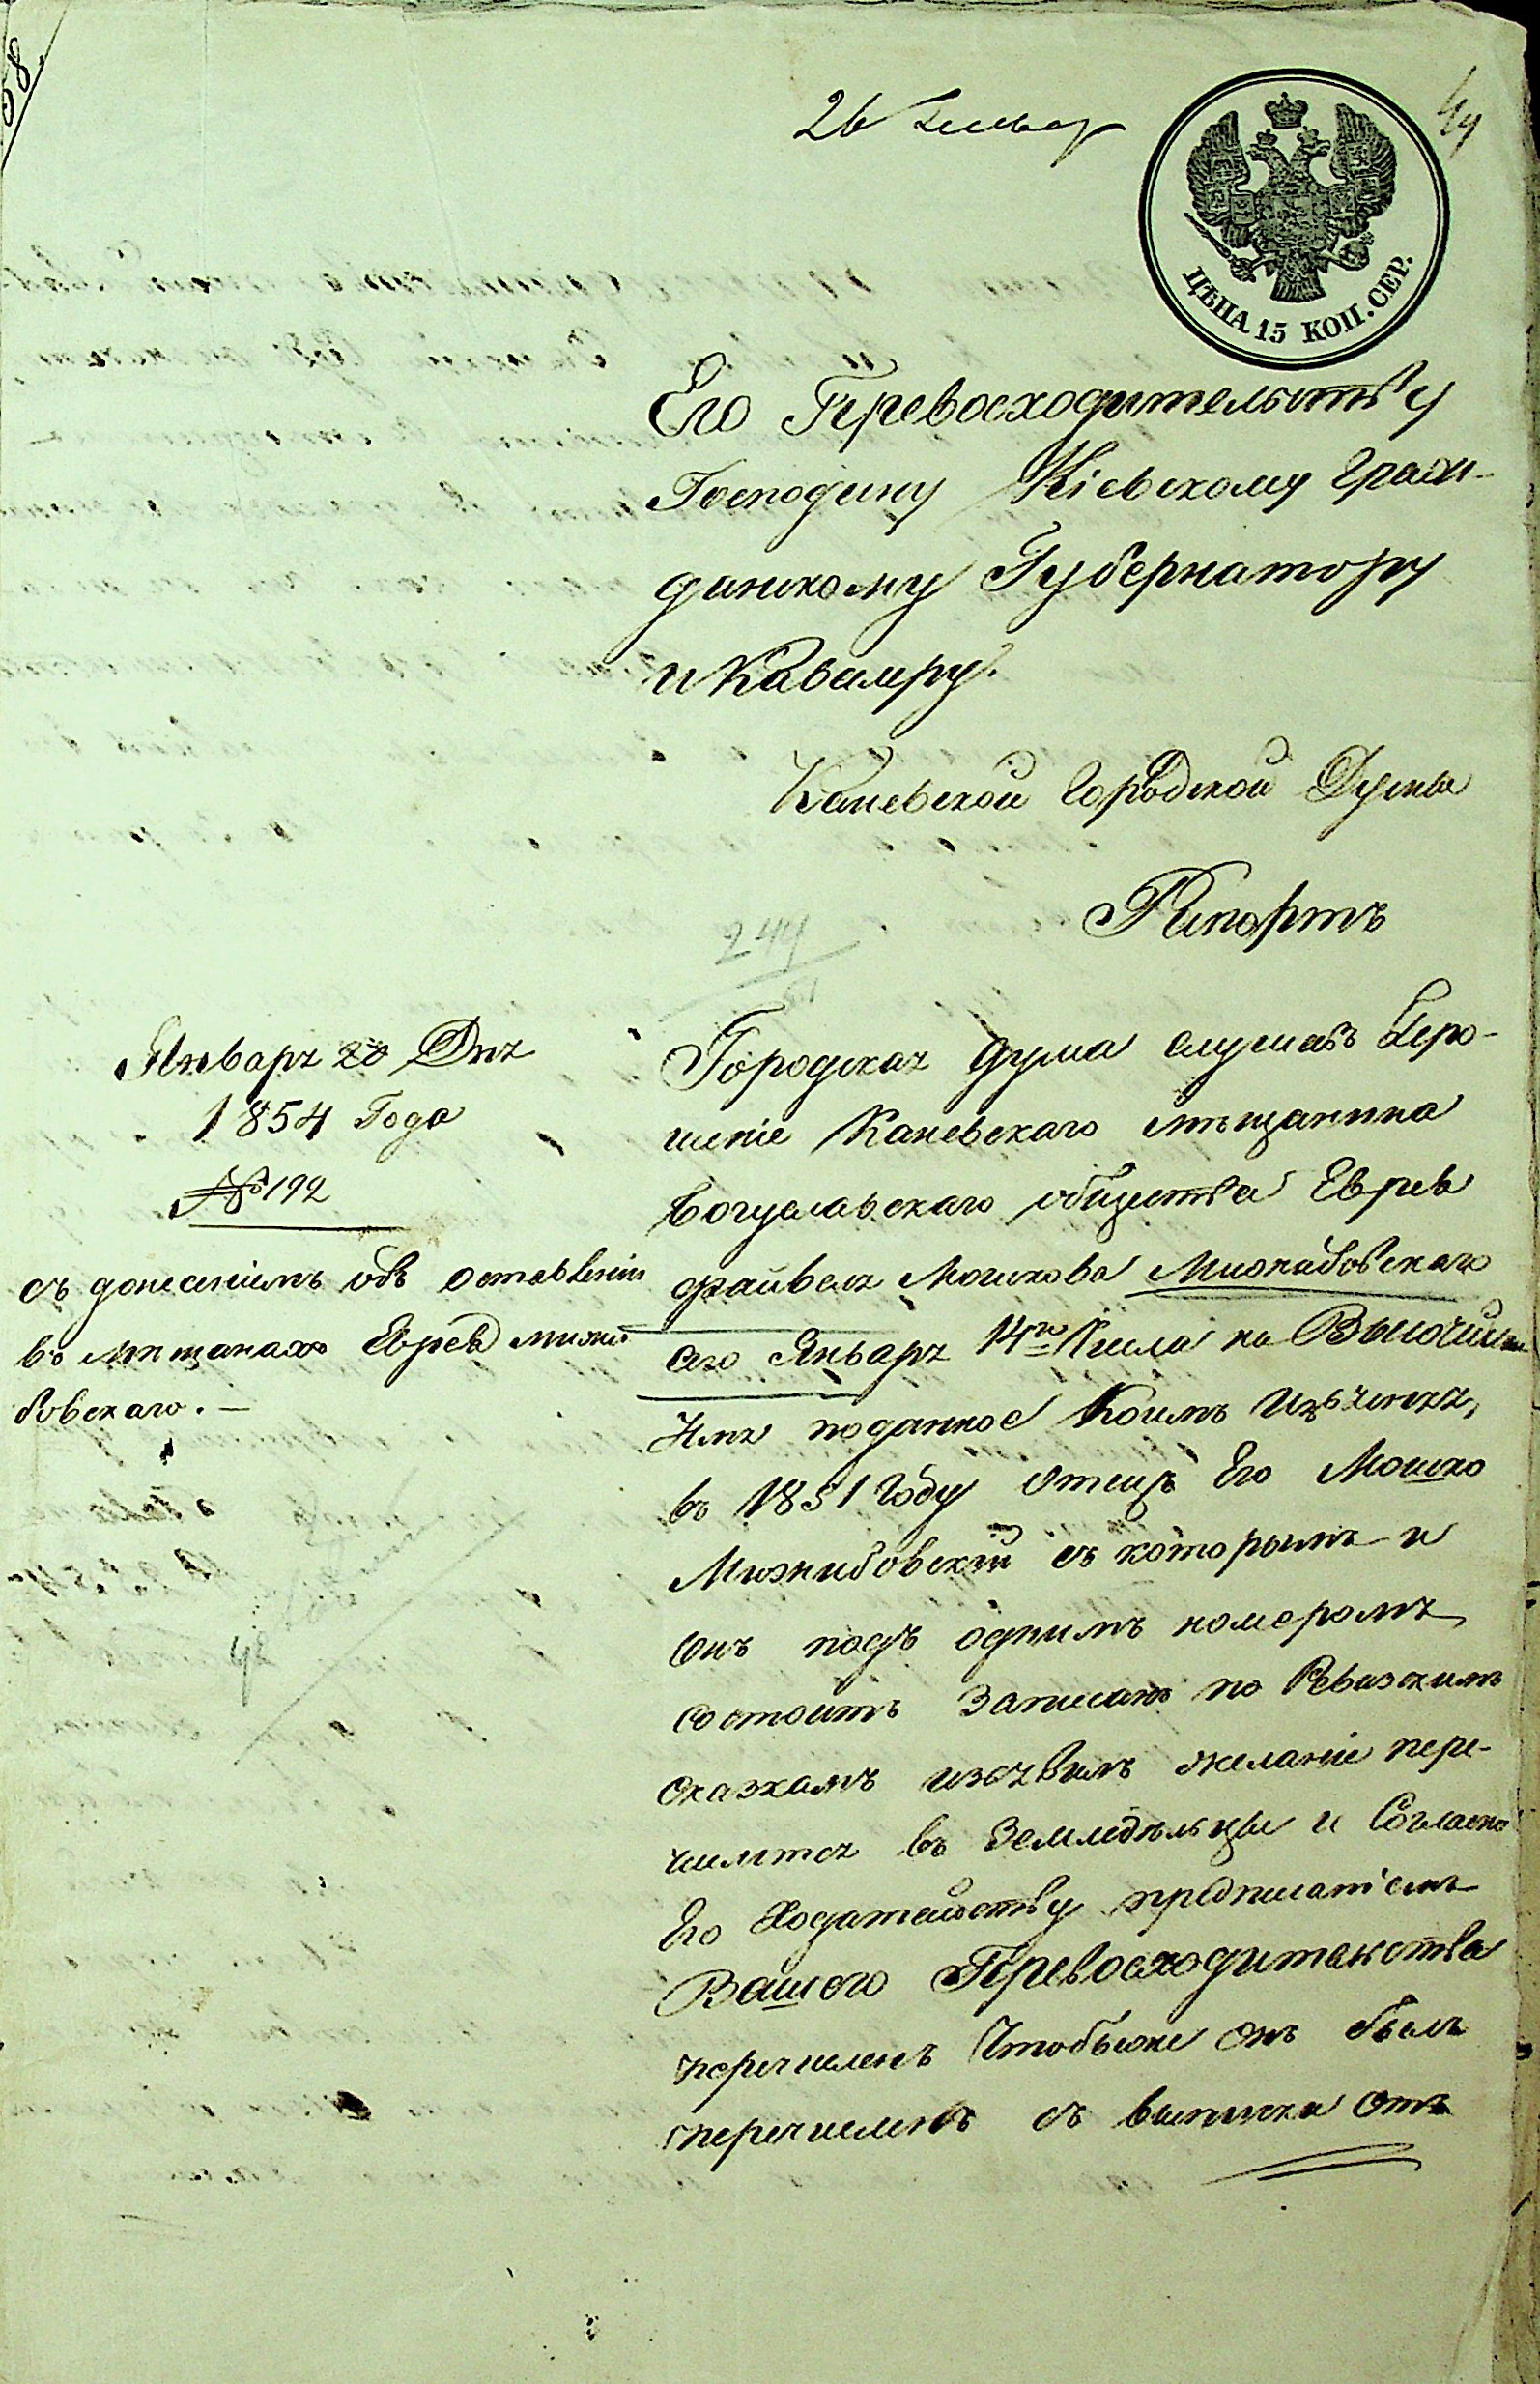 58
26 Генвар
44
ЦѢНА 15 КОП. СЕР.
Его Превосходительству
Господину Кіевскому Граж-
данскому Губернатору
и Кавалеру.
Каневской Городской Думы
Рапортъ
244
Январь 20 Дня
1854 Года
№ 192
съ донесеніемъ объ оставленіи
въ мѣщанахъ Еврея
бовскаго. —
Городская Дума слушавъ Про-
шеніе Каневскаго мѣщанина
Богуславскаго общества Еврея
Файвеля Мошкова Мижибовскаго
сего Января 14го Числа на Высочайше
Имя поданное Коимъ Изъясняя,
въ 1851 Году Отецъ Его Мошко
Мижибовскій съ которымъ и
Онъ подъ однимъ номеромъ
состоитъ Записанъ по Ревизскимъ
сказкамъ изъявилъ желаніе пере-
числится въ Земледѣльцы и Согласно
Его Ходатайству предписаніемъ
Вашего Превосходительства
перечисленъ Чтобыже онъ былъ
перечисленъ съ выписки Отъ